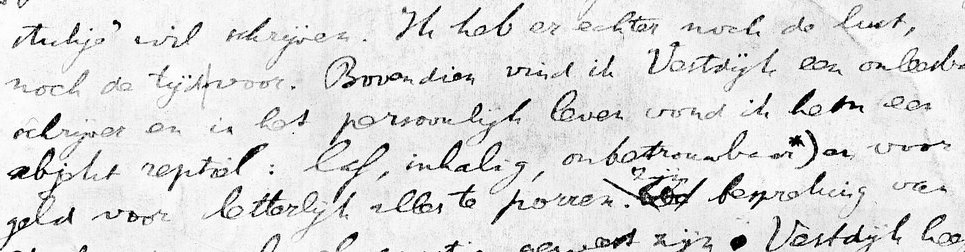 stukje wil schrijven. Ik heb er echter noch de lust,
noch de tijd voor. Bovendien vind ik Vestdijk een onleesba
schrijver en in het persoonlijk leven vond ik hem een
abjekt reptiel: laf, inhalig, onbetrouwbaar*) en voor
geld voor letterlijk alles te porren. Zijn bespreking van
zijn Vestdijk hee